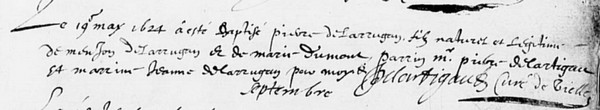 Le 19e may 1624 a esté Baptisé pierre delarrugan, filz naturel et Legitime
de menjon delarrugan et de marie dumont, parrin mr pierre delartigau
Et marrine Jeanne delarrugan pour moy delartigau Curé de Vielle
septembre